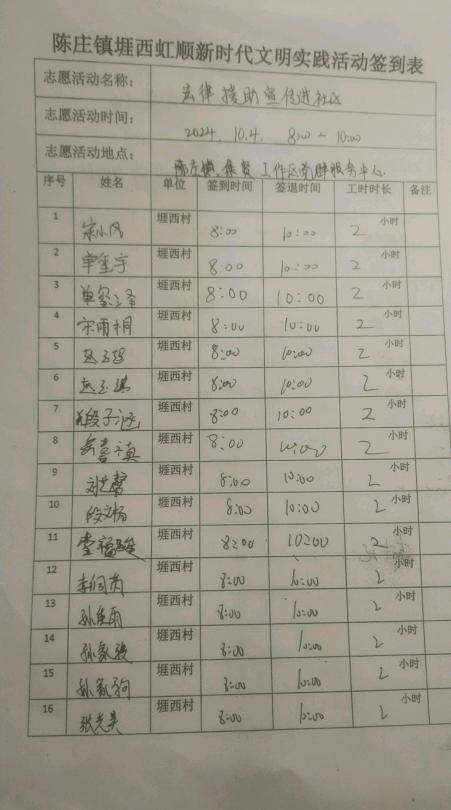 陈庄镇堐西虹顺新时代文明实践活动签到表
志愿活动名称： 法律援助宣传进社区
志愿活动时间： 2024.10.4. 8:00 ~ 10:00
志愿活动地点： 陈庄镇 工作区党群服务中心
序号 姓名 单位 签到时间 签退时间 工时时长 备注
1 宋小风 堐西村 8:00 10:00 2 小时
2 单奎宇 堐西村 8:00 10:00 2 小时
3 堐西村 8:00 10:00 2 小时
4 宋雨桐 堐西村 8:00 10:00 2 小时
5 堐西村 8:00 10:00 2 小时
6 赵玉琪 堐西村 8:00 10:00 2 小时
7 段子涵 堐西村 8:00 10:00 2 小时
8 堐西村 8:00 10:00 2 小时
9 刘艺馨 堐西村 8:00 10:00 2 小时
10 堐西村 8:00 10:00 2 小时
11 堐西村 8:00 10:00 2 小时
12 堐西村 8:00 10:00 2 小时
13 堐西村 8:00 10:00 2 小时
14 堐西村 8:00 10:00 2 小时
15 堐西村 8:00 10:00 2 小时
16 张光美 堐西村 8:00 10:00 2 小时